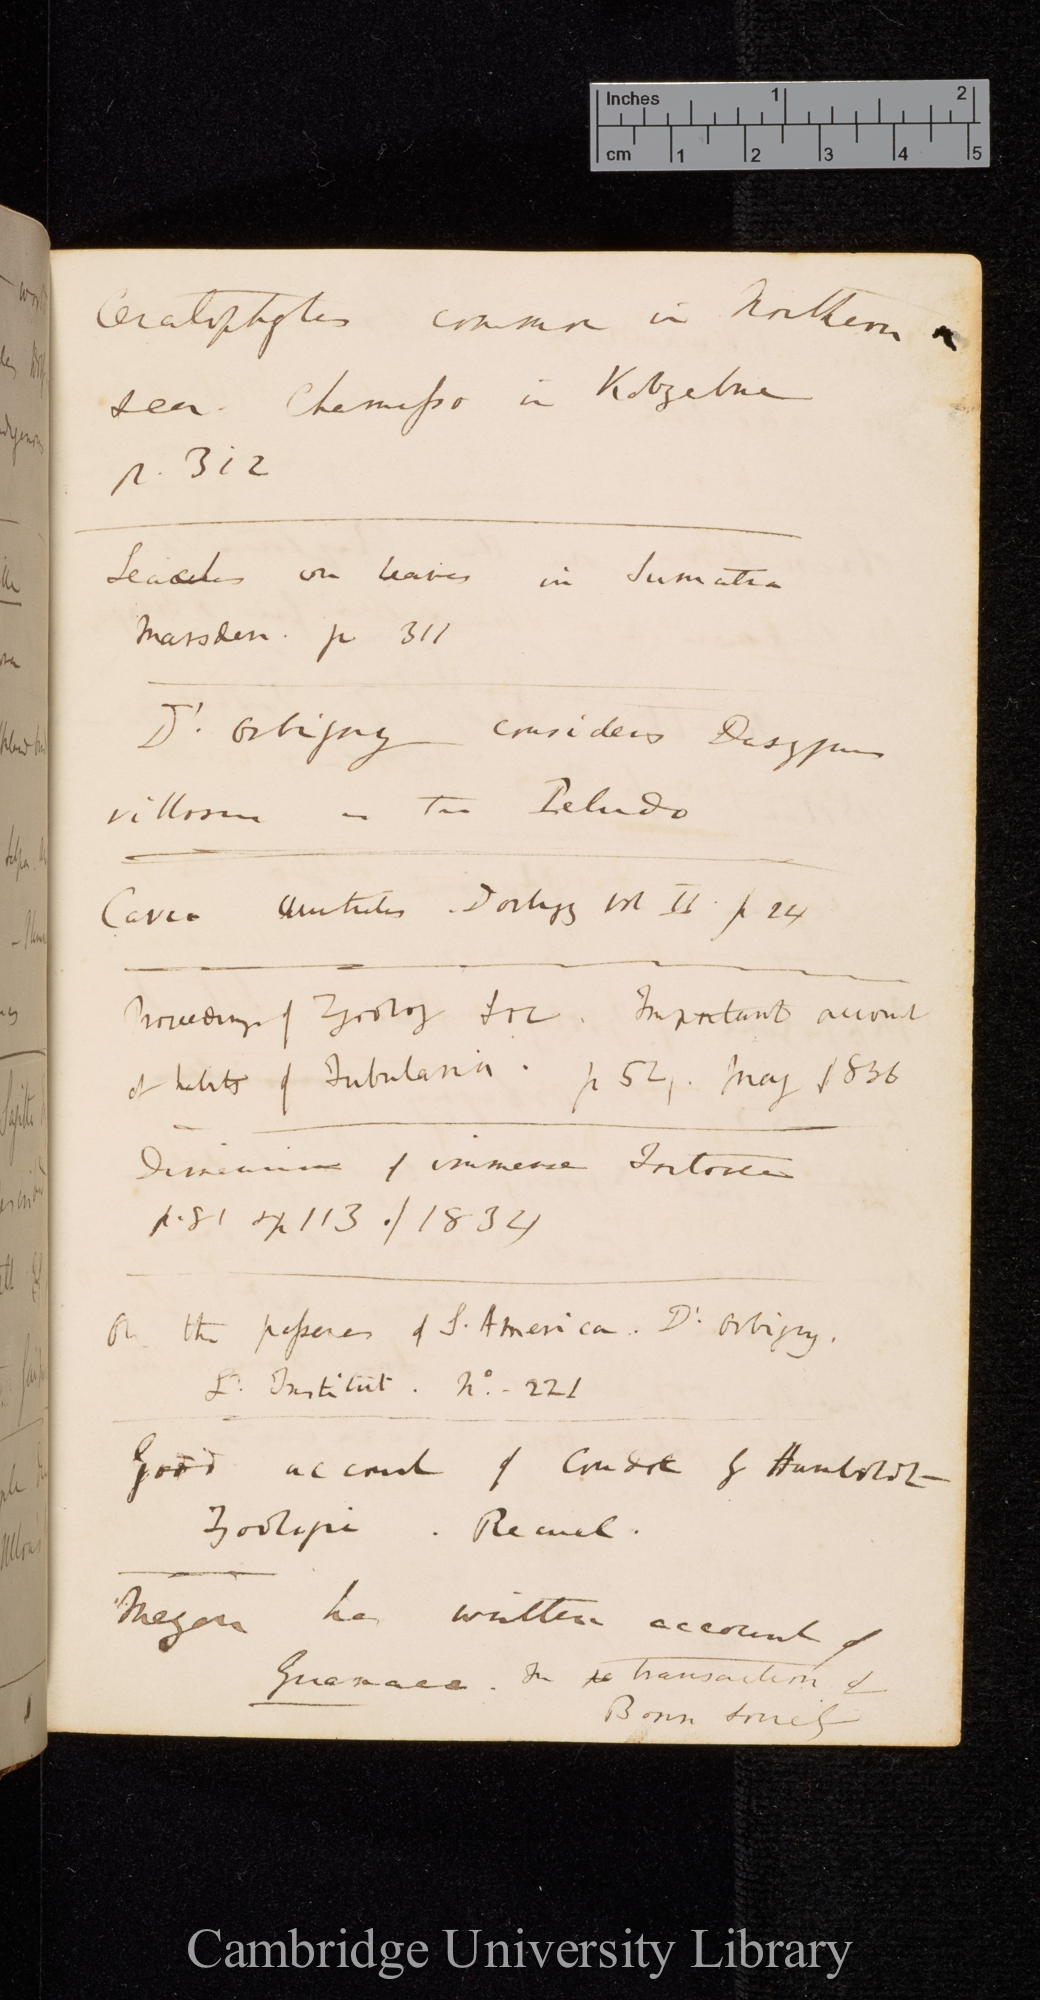 Inches 1 2
cm 1 2 3 4 5
Ceratophytes common in Northern
seas. Chamisso in Kotzebue
p. 312
Leaches on leaves in Sumatra
Marsden. p 311
D'. Orbigny considers Dasypus
villosus as the Peludo
Cavea Vol II. p 24
Proceedings of Zoolog Soc. Important account
of habits of Tubularia. p 52,. May 1836
Dimensions of immense Tortoise
p. 81 & p 113 of 1834
On the passeres of S. America. D'. Orbigny.
L'. Institut. No. - 221
Good account of Condor by Humboldt
Zoologie. Recueil.
Meyen has written account of
Guanaco. In transaction of
Bonn Society
Cambridge University Library